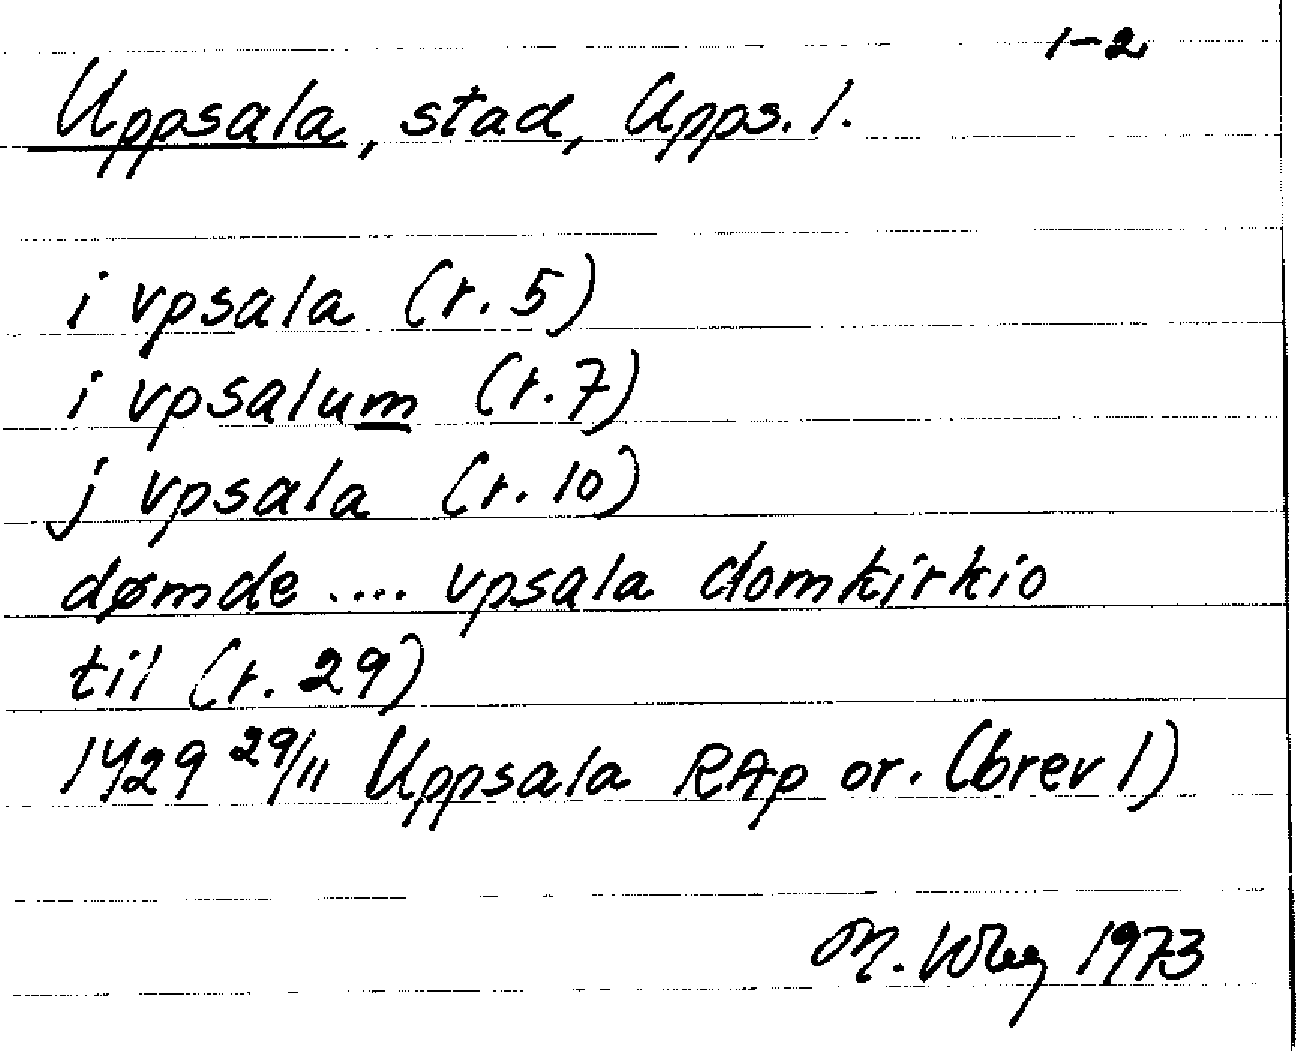 1-2
Uppsala, stad, Upps. l.
i vpsala (r. 5)
i vpsalum (r. 7)
j vpsala (r. 10)
dømde .... vpsala domkirkio
til (r. 29)
1429 29/11 Uppsala RAp or. (brev 1)
M. 1973